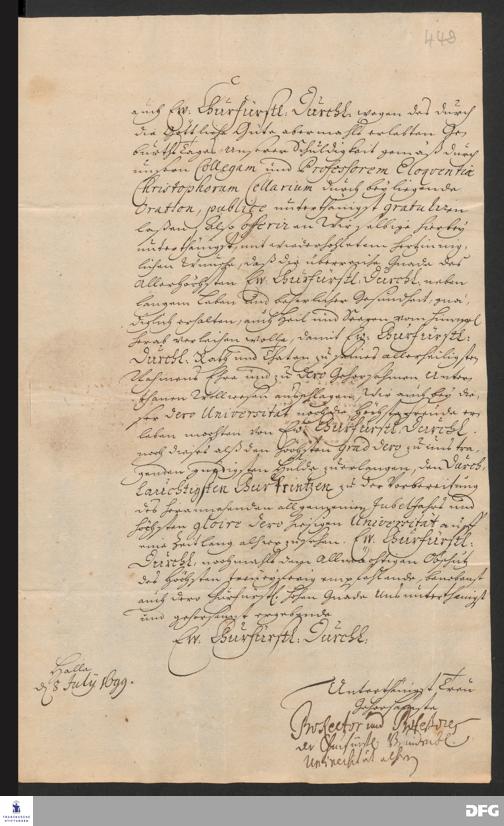 448
auch Ew: Churfürstl: Durchl: wegen des durch
die Göttliche Güte abermahls erlebten Ge-
burths Tages Unserer Schuldigkeit gemäß durch
unsern Collegam und Professorem Eloqventiæ
Christophorum Cellarium durch beyliegende
Oration, publice unterthänigst gratuliren
laßen; Also offeriren Wir selbige hierbey
unterthänigst, mit wiederholtem hertzinnig-
lichen Wunsche, daß die Gnade des
Allerhöchsten Ew. Churfürstl: Durchl: neben
langem Leben und Gesundheit, gnä-
diglich erhalten, auch Heil und Seegen vom Himmel
herab verleihen wolle, damit Ew: Churfürstl:
Durchl: Rath und Thaten zu seines allerheiligsten
Nahmens Ehre und zu Dero Gehorsahmen Unter-
thanen Wollwesen ausschlagen, Wir auch bey die-
ser Dero Universität noch die Höchste Freude er-
leben mochten von Ew. Churfürstl: Durchl:
noch dieses alß den höchsten grad Dero zu uns tra-
genden gnädigsten Hulde zu erlangen, den Durch-
lauchtigsten ChurPrintzen zu der Vorbereitung
des herannahenden allgemeinen Jubelfahrs und
höchsten gloire Dero hiesigen Universität auff
eine Zeitlang alhier zu sehen. Ew. Churfürstl:
Durchl: nochmahls dem Allmächtigen Obschutz
des Höchsten empfehlende, benebenst
auch dero Churfürstl: hohen Gnade Uns unterthänigst
und gehorsamst ergebende
Ew. Churfürstl: Durchl:
Halle
d. 8 July 1699.
Unterthänigst Treu
Gehorsamste
ProRector und Professores
der Churfürstl. Brandenb.
Universität alhier
FRANCKESCHE STIFTUNGEN
DFG